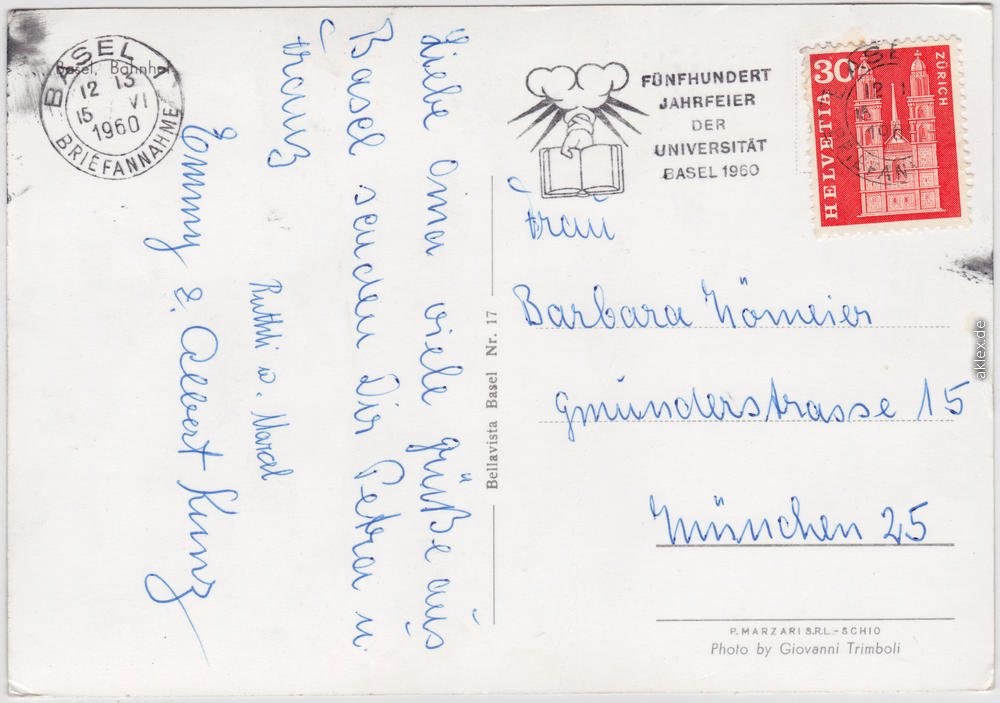 Basel, Bahnhof
BASEL
12 15
15 VI
1960
BRIEFANNAHME
Liebe Oma viele Grüße aus
Basel senden Dir Petra u.
Franz
Ruthli u. Marcel
Emmy & Albert Kunz
Bellavista Basel Nr. 17
FÜNFHUNDERT
JAHRFEIER
DER
UNIVERSITÄT
BASEL 1960
30
HELVETIA
ZÜRICH
Frau
Barbara Nömeier
Gmunderstrasse 15
München 25
P. MARZARI S.R.L. - SCHIO
Photo by Giovanni Trimboli
aklex.de